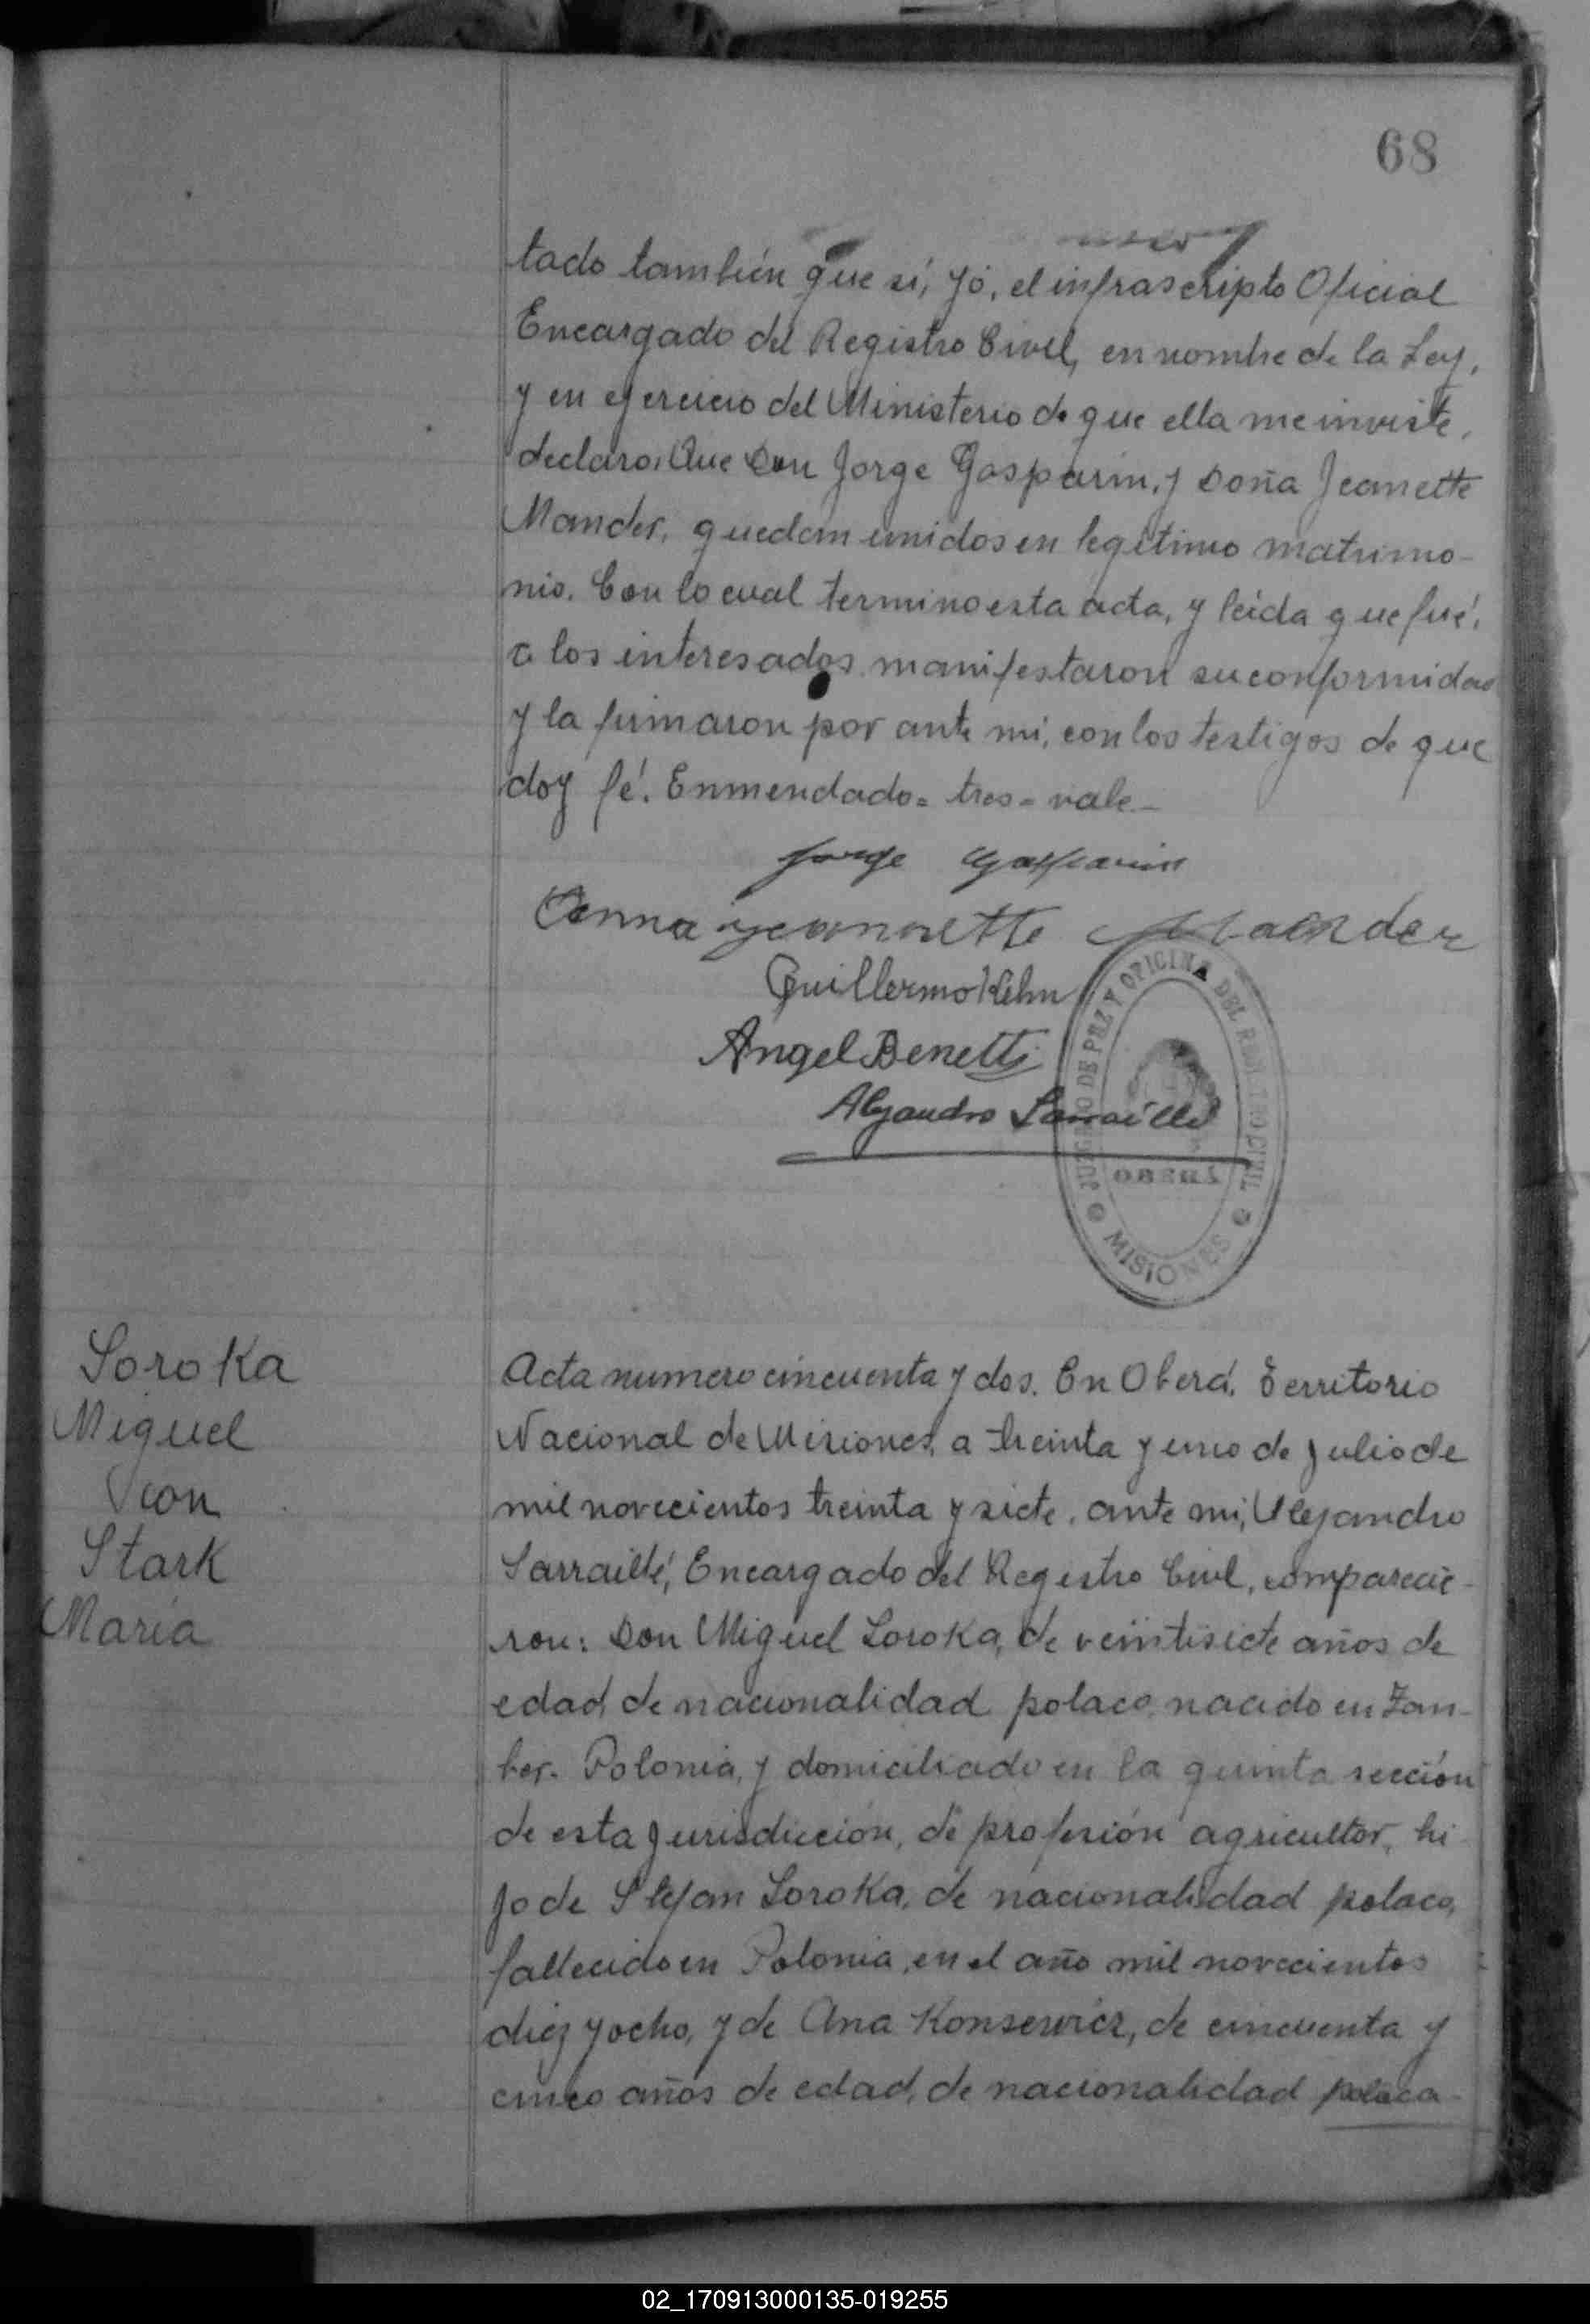 68
tado también que sí, yó, el infrascripto Oficial
Encargado del Registro Civil, en nombre de la Ley,
y en ejercicio del Ministerio de que ella me inviste,
declaro: Que Don Jorge Gasparin, y Doña Jeanette
Mander, quedan unidos en legítimo matrimo-
nio. Con lo cual termino esta acta, y leída que fué,
a los interesados manifestaron su conformidad
y la firmaron por ante mí, con los testigos de que
doy fé. Enmendado= tres= vale-
Jorge Gasparin
Anna Jeannette Maender
Guillermo
Angel Benetti
Alejandro Sarraillé
JUZGADO DE PAZ Y OFICINA DEL REGISTRO CIVIL
OBERÁ
MISIONES
Soroka
Miguel
con
Stark
María
Acta numero cincuenta y dos. En Oberá, Territorio
Nacional de Misiones, a treinta y uno de Julio de
mil novecientos treinta y siete, ante mí, Alejandro
Sarraillé, Encargado del Registro Civil, comparecie-
ron: Don Miguel Soroka, de veintisiete años de
edad, de nacionalidad polaco, nacido en Zan-
ber- Polonia, y domiciliado en la quinta sección
de esta Jurisdicción, de profesión agricultor, hi
jo de Stefan Soroka, de nacionalidad polaco,
fallecido en Polonia, en el año mil novecientos
diez y ocho, y de Ana Konsewicz, de cincuenta y
cinco años de edad, de nacionalidad polaca-
02_170913000135-019255